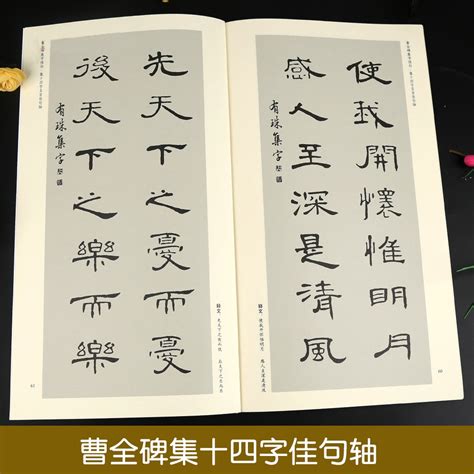 使我開懷惟明月
感人至深是清風
有珠集字
先天下之憂而憂
後天下之樂而樂
有珠集字
曹全碑集十四字佳句轴